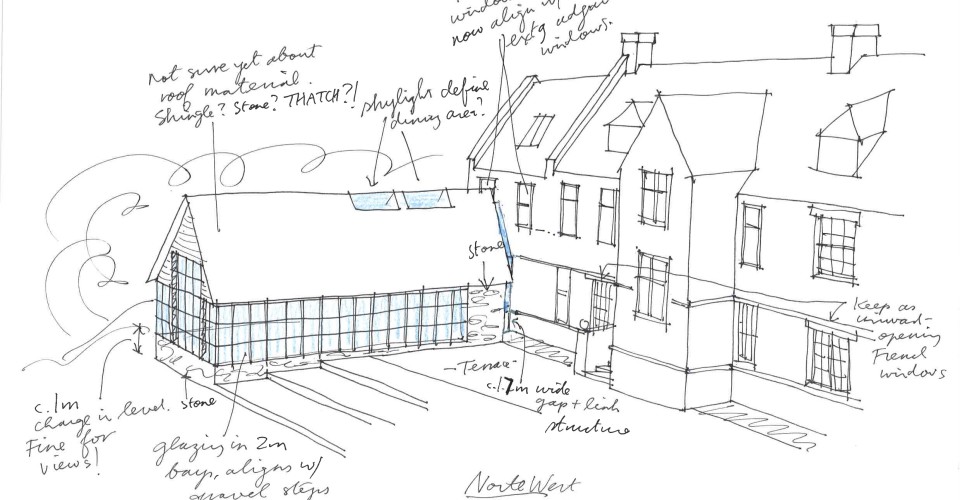 now align w/
extg adjac
windows.
Not sure yet about
roof material.
Shingle? Stone? THATCH?!
skylights define
dining area?
stone
Keep as
opening
French
windows
- Terrace -
c.1.7m wide
gap + link
structure
c.1m
change in level.
Fine for
views!
stone
glazing in 2m
bays, aligns w/
gravel steps